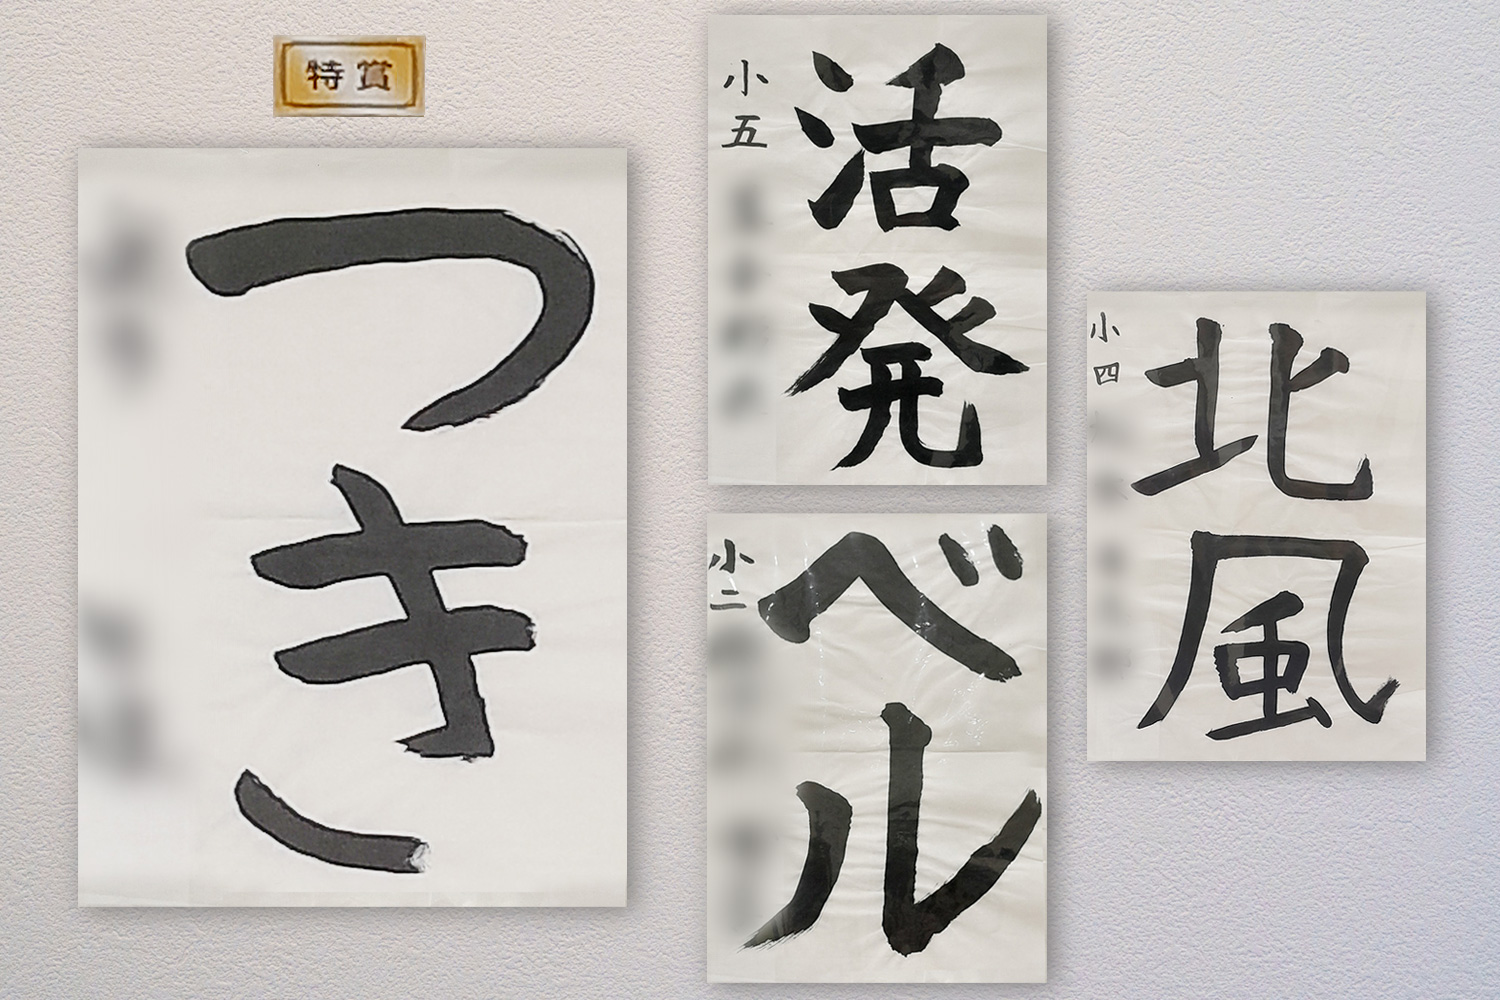 特賞
つき
小五
活発
小二
ベル
小四
北風